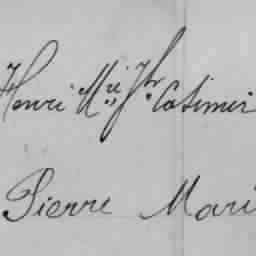 Henri Mie Jh Casimir
Pierre Mari